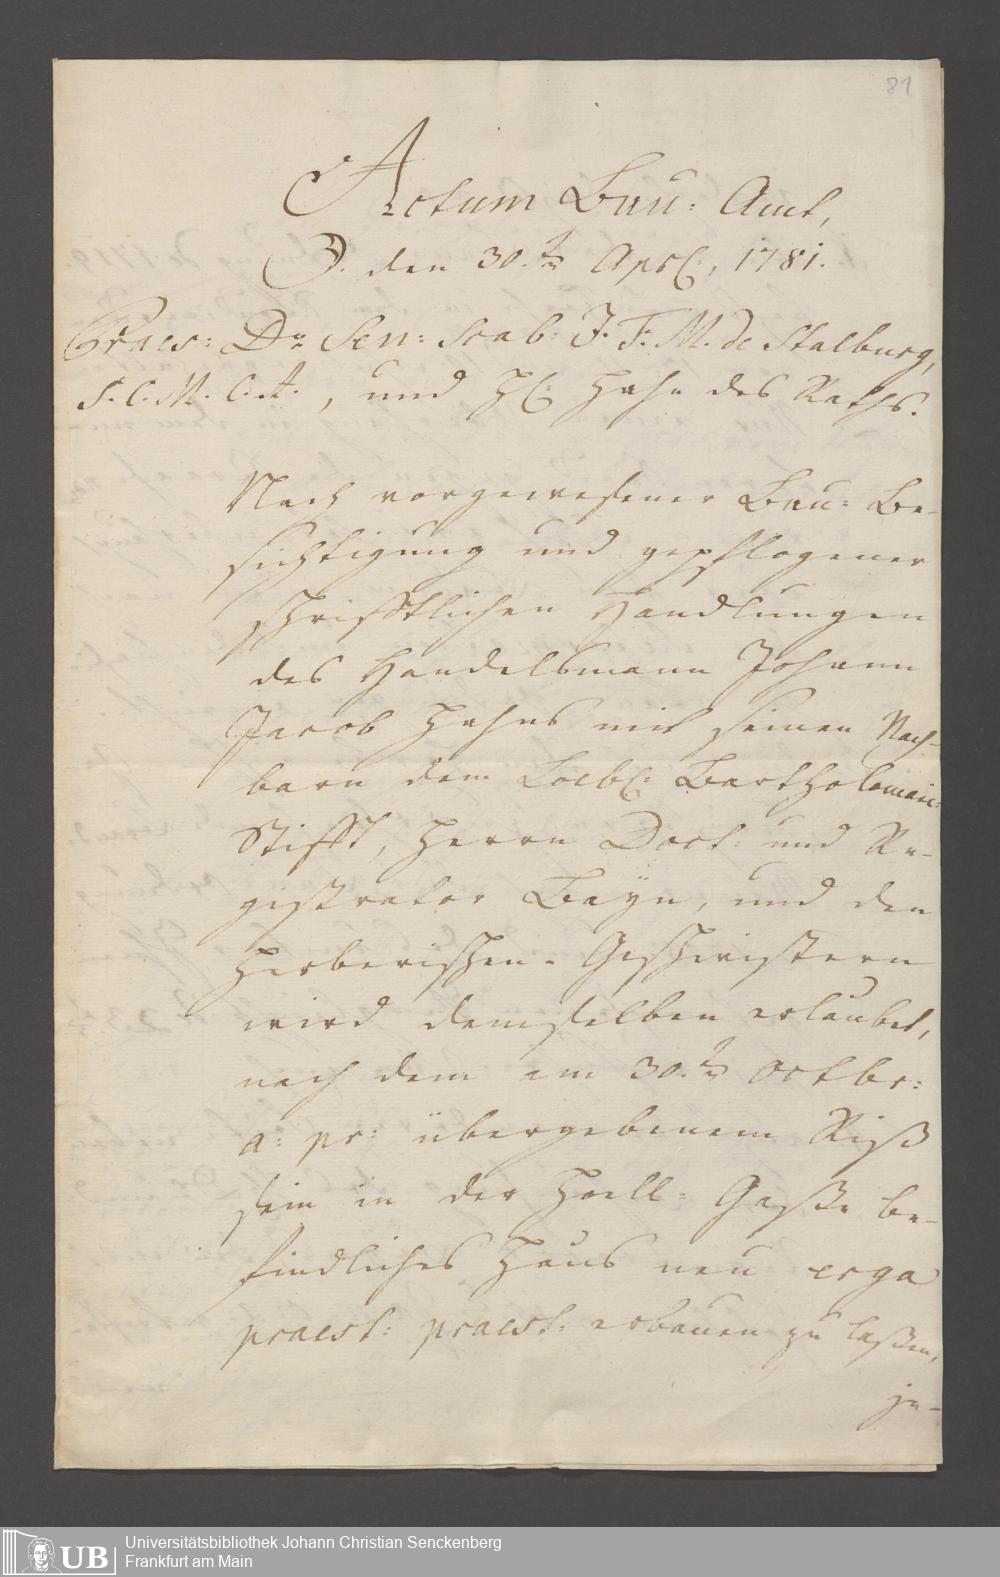 81
Actum Bau: Amt,
D. den 30.ten Aprl:, 1781.
Praes: Dn: Sen: Scab: J. F. M. de Stalburg,
S. C. M. C. A., und H: Hahn des Raths.
Nach vorgewesener Bau: Be-
sichtigung und gepflogener
schrifftlichen Handlungen
des Handelsmann Johann
Jacob Hahns mit seinen Nach-
barn dem Loebl: Bartholomaei:
Stifft, Herrn Doct: und Re-
gistrator Bayn, und den
Herberischen-Geschwistern
wird demselben erlaubet,
nach dem am 30.ten Octbr:
a: pr: übergebenem Riß
sein in der Hoell-Gaße be-
findliches Haus neu erga
praest: praest: erbauen zu laßen,
je-
Universitätsbibliothek Johann Christian Senckenberg
Frankfurt am Main
UB